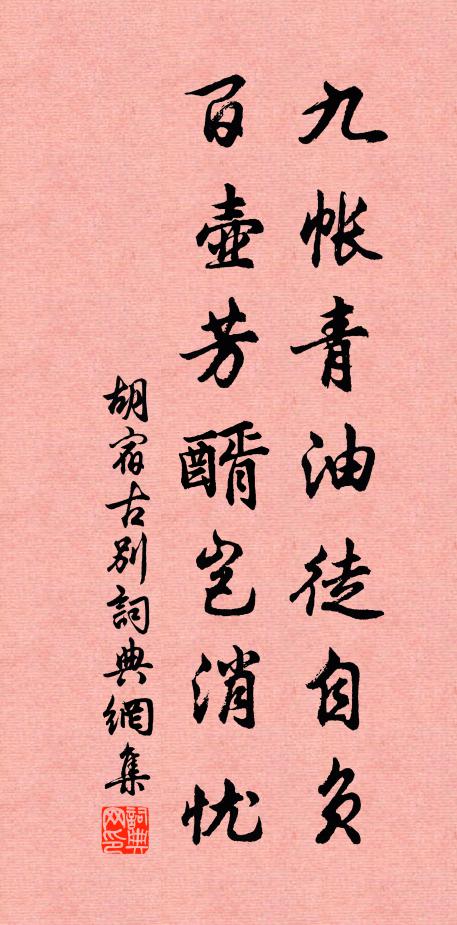 九帐青油徒自负
百壶芳醑岂消忧
胡宿古别詞典網集
詞典網印